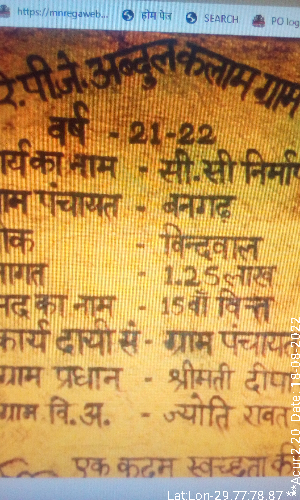 https://mnregaweb... होम पेज SEARCH PO log
रे.पी.जे.अब्दुल कलाम ग्राम
वर्ष - 21-22
र्य का नाम - सी.सी निर्मा
ाम पंचायत - बनगढ़
ोक - विन्दवाल
ागत - 1.25 लाख
मद का नाम - 15वाँ वित्त
कार्य दायी सं - ग्राम पंचाय
ग्राम प्रधान - श्रीमती दीपा
ग्राम वि.अ. - ज्योति रावत
एक कदम स्वच्छता की
Lat Lon-29.77:78.87 ***Acur:2.20 Date:18-08-2022